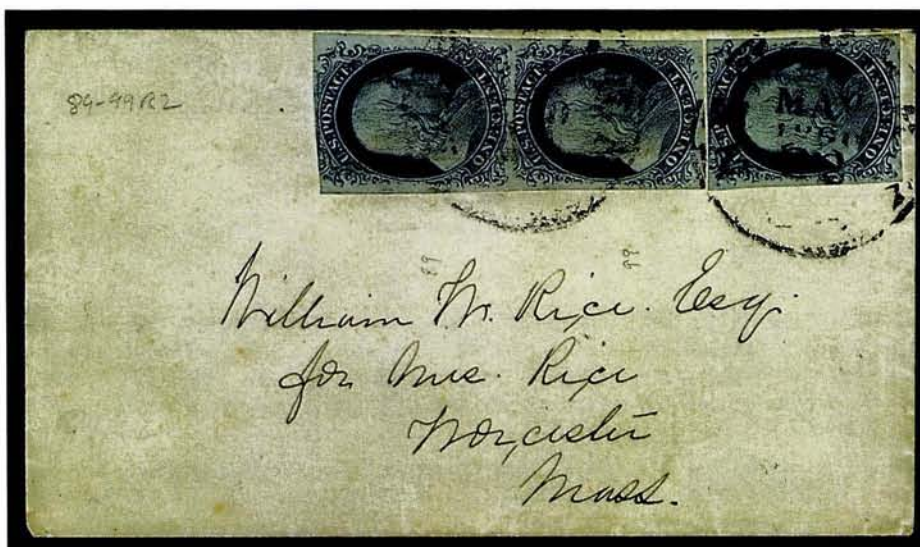 U.S. POSTAGE ONE CENT
U.S. POSTAGE ONE CENT
U.S. P AGE ONE CENT
MAY
84-99R2
89
99
William W. Rice. Esq.
for Mrs. Rice
Worcester
Mass.